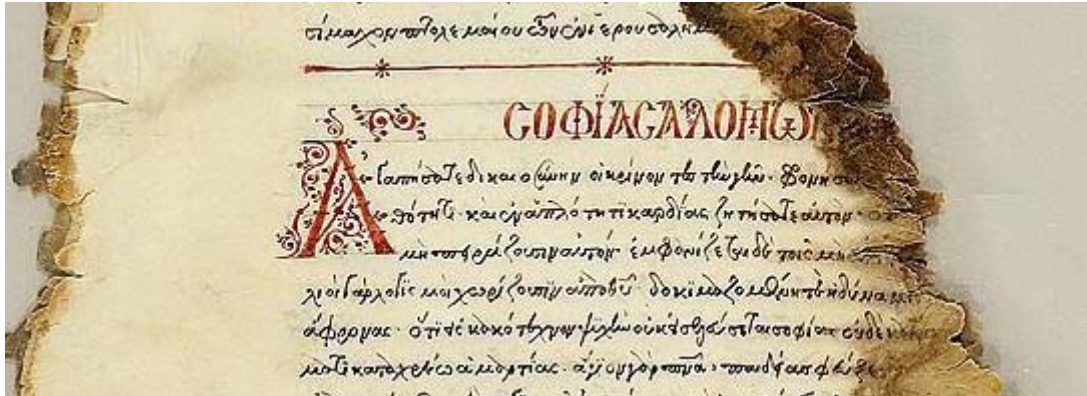 σίμαχον πτολεμαίου τῶν ἐν ἱερουσαλημ
ΣΟΦΪΑ ΣΑΛΟΜΩΝ
Ἀγαπήσατε δικαιοσύνην οἱ κρίνοντες τὴν γῆν· φρονήσα
θότητι· καὶ ἐν ἁπλότητι καρδίας ζητήσατε αὐτόν· ὅτι
μὴ πειράζουσιν αὐτόν· ἐμφανίζεται δὲ τοῖς μὴ
λιοὶ γὰρ λογισμοὶ χωρίζουσιν ἀπὸ θῦ· δοκιμαζομένη τε ἡ δύναμις
ἄφρονας· ὅτι εἰς κακότεχνον ψυχὴν οὐκ εἰσελεύσεται σοφία· οὐδὲ
ματι κατάχρεω ἁμαρτίας· ἅγιον γὰρ πνᾶ παιδείας φεύξε